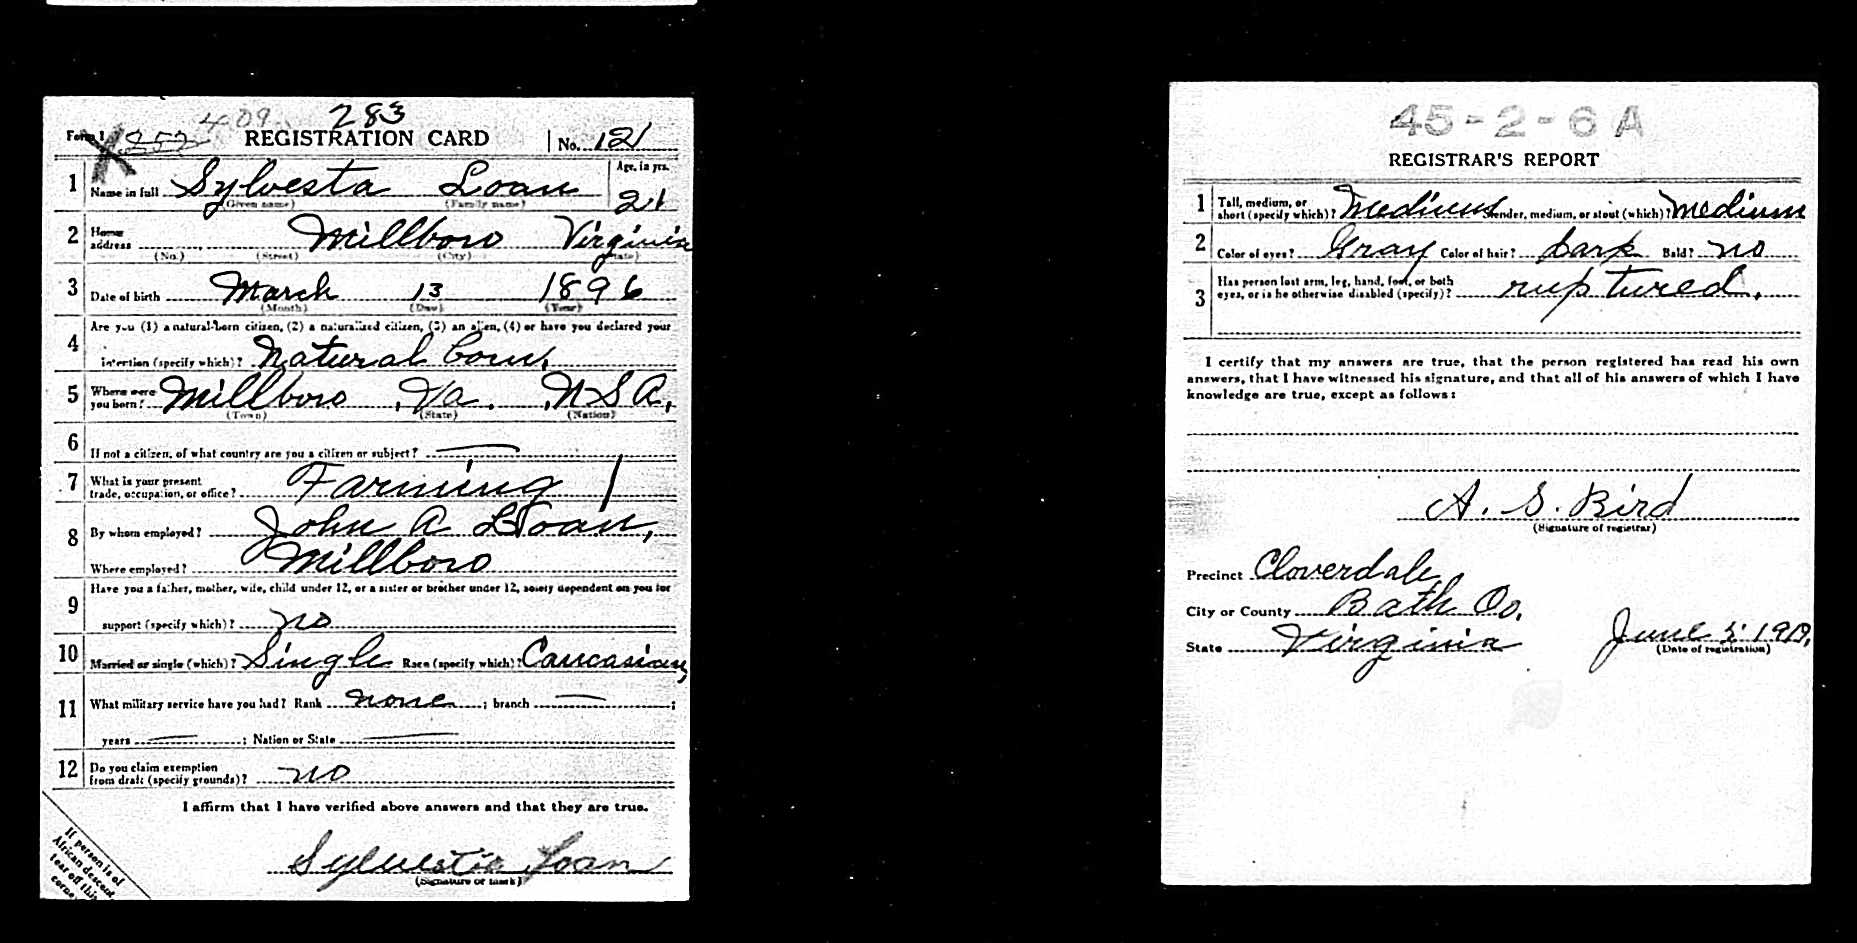 409 283
Form 1 252 REGISTRATION CARD No. 121
1 Name in full Sylvesta Loan Age, in yrs. 21
(Given name) (Family name)
2 Home address Millboro Virginia
(No.) (Street) (City) (State)
3 Date of birth March 13 1896
(Month) (Day) (Year)
4 Are you (1) a natural-born citizen, (2) a naturalized citizen, (3) an alien, (4) or have you declared your
intention (specify which)? Natural born.
5 Where were you born? Millboro, Va. U S A.
(Town) (State) (Nation)
6 If not a citizen, of what country are you a citizen or subject? —
7 What is your present trade, occupation, or office? Farming
8 By whom employed? John A Loan,
Where employed? Millboro
9 Have you a father, mother, wife, child under 12, or a sister or brother under 12, solely dependent on you for
support (specify which)? no
10 Married or single (which)? Single Race (specify which)? Caucasian
11 What military service have you had? Rank none ; branch — ;
years — ; Nation or State —
12 Do you claim exemption from draft (specify grounds)? no
I affirm that I have verified above answers and that they are true.
Sylvesta Loan
(Signature or mark)
If person is of
African descent,
tear off this
corner
45-2-6 A
REGISTRAR'S REPORT
1 Tall, medium, or short (specify which)? Medium Slender, medium, or stout (which)? Medium
2 Color of eyes? Gray Color of hair? Dark Bald? no
3 Has person lost arm, leg, hand, foot, or both
eyes, or is he otherwise disabled (specify)? ruptured.
I certify that my answers are true, that the person registered has read his own
answers, that I have witnessed his signature, and that all of his answers of which I have
knowledge are true, except as follows:
A. S. Bird
(Signature of registrar)
Precinct Cloverdale
City or County Bath Co.
State Virginia June 5 1917.
(Date of registration)